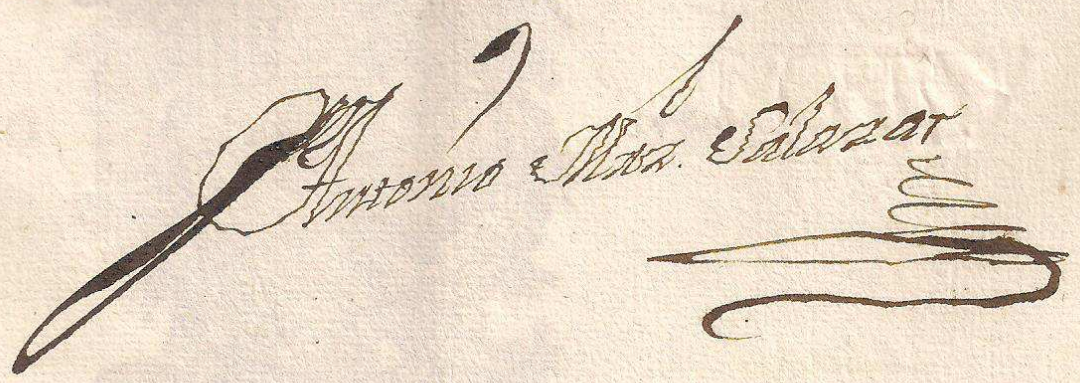 Antonio Mrz. Salazar